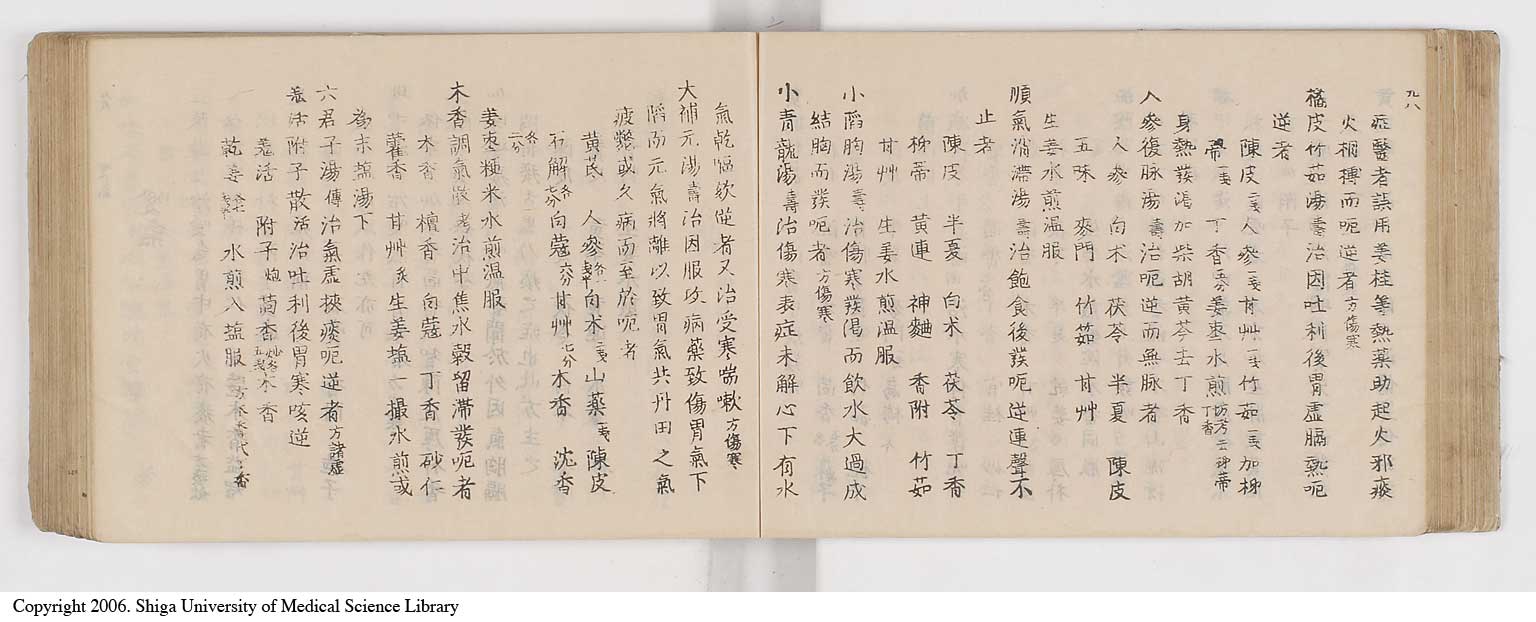 九八
症醫者誤用姜桂等熱薬助起火邪痰
火相搏而呃逆者方傷寒
橘皮竹茹湯壽治因吐利後胃虚膈熱呃
逆者
陳皮二戔人參一戔甘艸一戔竹茹一戔加柿
蒂一戔丁香五分姜棗水煎
身熱發渇加柴胡黄芩去丁香
人參復脉湯壽治呃逆而無脉者
人參 白术 茯苓 半夏 陳皮
五味 麥門 竹茹 甘艸
生姜水煎温服
順氣消滯湯壽治飽食後發呃逆連聲不
止者
陳皮 半夏 白术 茯苓 丁香
柿蒂 黄連 神麯 香附 竹茹
甘艸 生姜水煎温服
小陷胸湯壽治傷寒發渇而飲水大過成
結胸而發呃者方傷寒
小青龍湯壽治傷寒表症未解心下有水
氣乾嘔欬逆者又治受寒喘嗽方傷寒
大補元湯壽治因服攻病薬致傷胃氣下
陷而元氣將離以致胃氣共丹田之氣
疲憊或久病而至於呃者
黄芪 人參 白术二戔山薬一戔陳皮
石解各七分白蔲六分甘艸七分木香 沈香
各二分
姜棗粳米水煎温服
木香調氣散考治中焦水穀留滯發呃者
木香 檀香 白蔲 丁香 砂仁
藿香 甘艸 生姜盬一撮水煎或
爲末盬湯下
六君子湯傳治氣虚挾痰呃逆者方諸虚
羗活附子散活治吐利後胃寒咳逆
羗活 附子炮 茴香炒 木香
乾姜 水煎入盬服